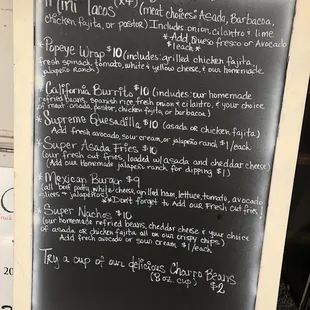 Mini Tacos (x4) (meat choices: Asada, Barbacoa,
chicken fajita, or pastor) Includes onion, cilantro & lime
*Add Queso fresco or Avocado
$1 each*
*Popeye Wrap $10 (includes: grilled chicken fajita,
fresh spinach, tomato, white & yellow cheese, & our homemade
jalapeño ranch)
*California Burrito $10 (includes: our homemade
refried beans, spanish rice, fresh onion & cilantro, & your choice
of meat: asada, pastor, chicken fajita, or barbacoa)
*Supreme Quesadilla $10 (asada or chicken fajita)
Add fresh avocado, sour cream, or jalapeño ranch, $1/each
*Super Asada Fries $10
(our fresh cut fries, loaded w/ asada and cheddar cheese)
(Add our homemade jalapeño ranch for dipping $1)
*Mexican Burger $9
(all beef patty, white cheese, grilled ham, lettuce, tomato, avocado
slices & jalapeños) *Don't forget to Add our Fresh Cut fries,
*Super Nachos $10
(our homemade refried beans, cheddar cheese & your choice
of asada or chicken fajita all on our crispy chips)
Add fresh avocado or sour cream $1/each
Try a cup of our delicious Charro Beans
(8oz. cup) $2
20